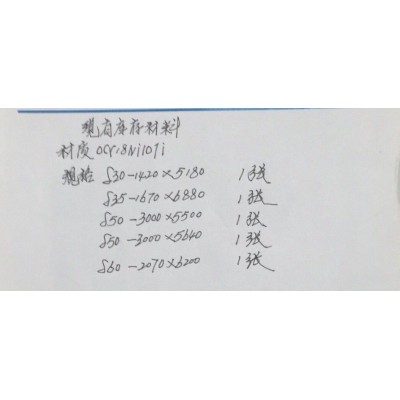 现有库存材料
材质0Cr18Ni10Ti
规格 δ30-1420×5180 1张
δ35-1670×6880 1张
δ50-3000×5500 1张
δ50-3000×5640 1张
δ60-2070×6200 1张